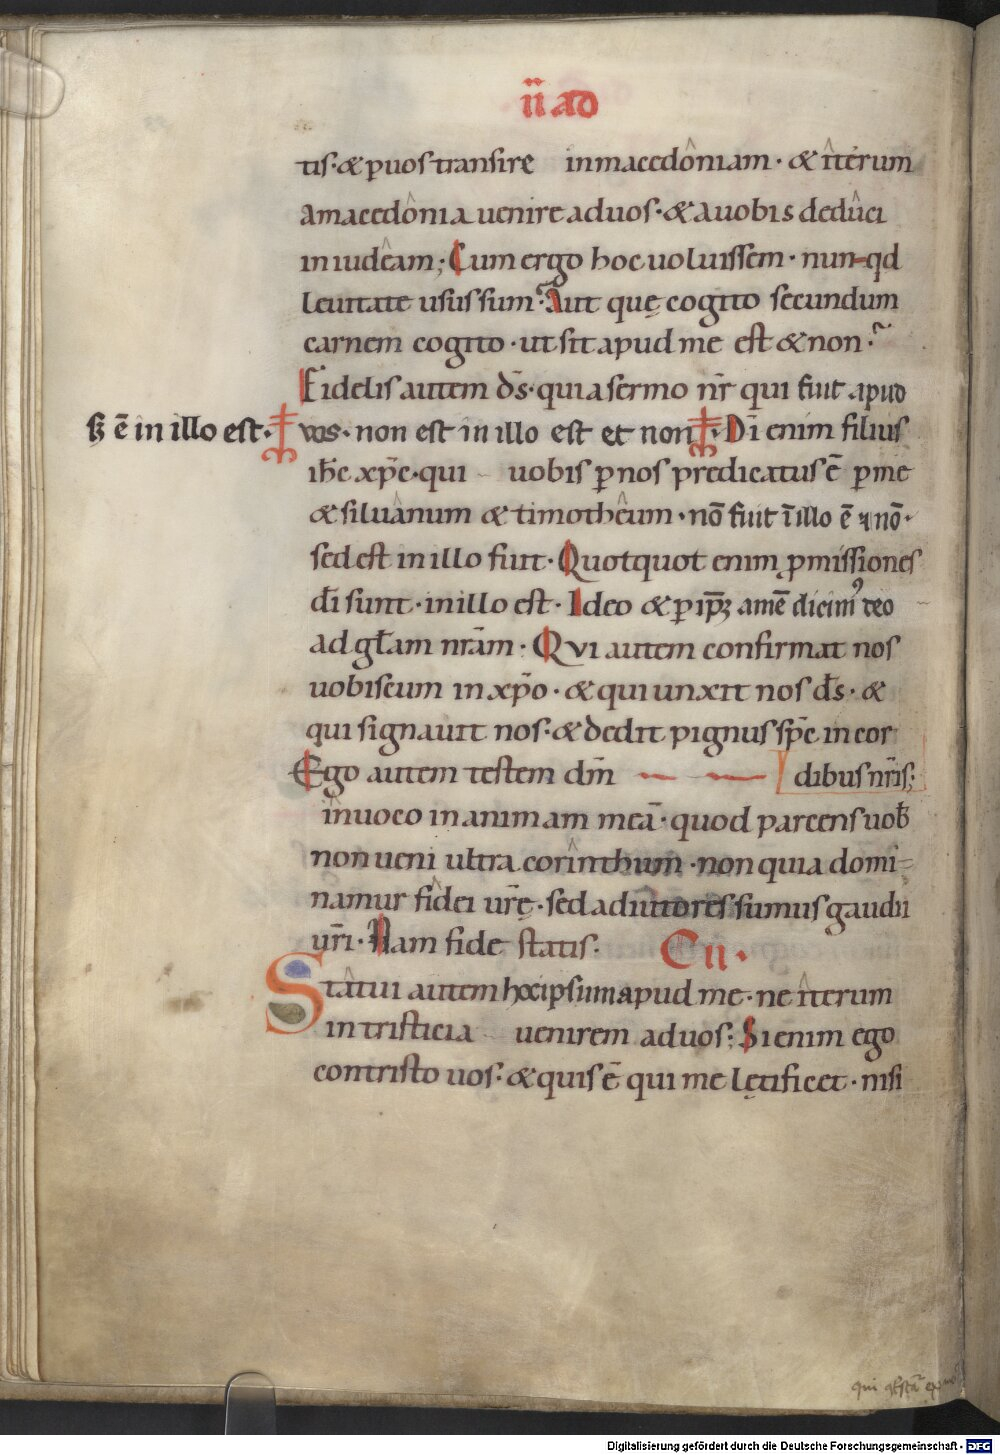 ii ad
tis · & p̱ uos transire in macedôniam · & îterum
a macedônia uenire ad uos · & a uobis dedûci
in iudêam ; Cum ergo hoc uoluissem · nun-qd
leuitate usus sum · Aut quę cogito secundum
carnem cogito · ut sit apud me est & non ·
Fidelis autem d̄s · quia sermo nr̄ qui fuit apud
uos · non est in illo est et non · Dī enim filius
s̄ ē in illo est ·
ih̄c xp̄c · qui uobis ꝑ nos predicatus ē ꝑ me
& siluânum & timothêum · nō fuit ī illo ē & nō ·
sed est in illo fuit · Quotquot enim ꝓmissiones
dī sunt · in illo est · Ideo & ꝑ ip̄ꝫ amē dicimꝰ deo
ad gl̄am nr̄am · Qui autem confirmat nos
uobiscum in xp̄o · & qui unxit nos d̄s · &
qui signauit nos · & dedit pignus sp̄c in cor
dibus nr̄is ;
Ego autem testem dm̄
înuoco in animam meā · quod parcens uob̄
non ueni ultra corînthum · non quia domi-
namur fîdei ur̄ę · sed adiûtores sumus gaudii
ur̄i · Nam fide statis · C ii ·
Stâtui autem hoc ipsum apud me · ne îterum
in tristicia uenirem ad uos ; Si enim ego
contristo uos · & quis ē qui me lętificet · nisi
Digitalisierung gefördert durch die Deutsche Forschungsgemeinschaft - DFG